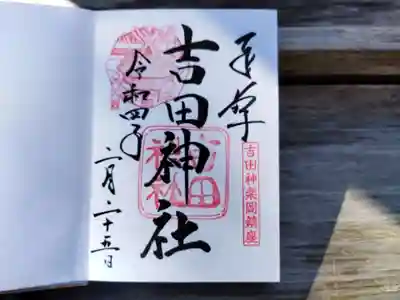 奉拝
吉田神楽岡鎮座
吉田神社
吉田神社
令和四年
月二十五日